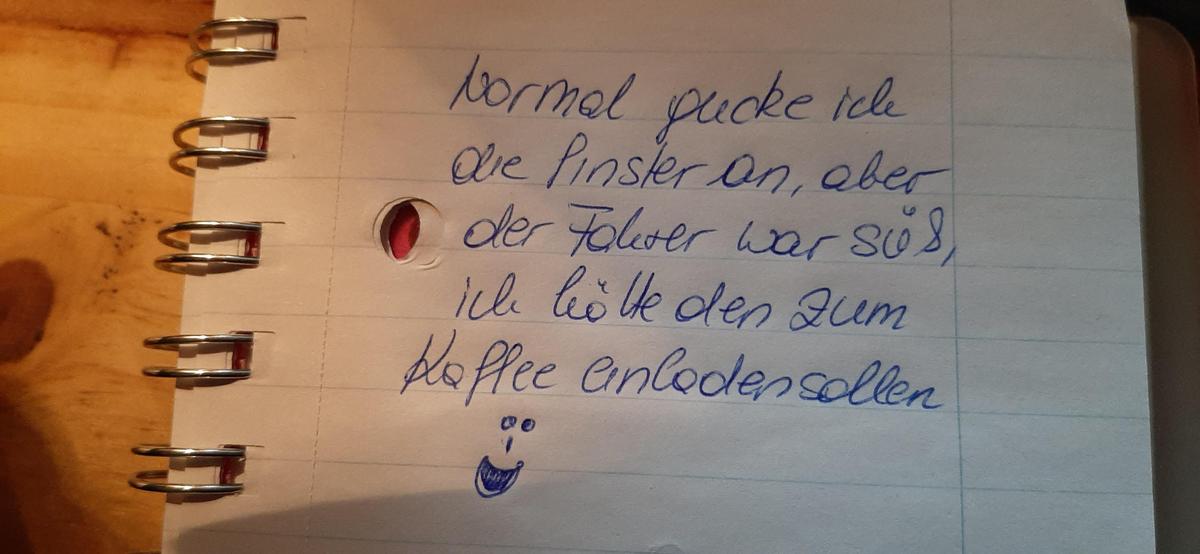 Normal gucke ich
die finster an, aber
der Fahrer war süß,
ich hätte den zum
Kaffee einladen sollen